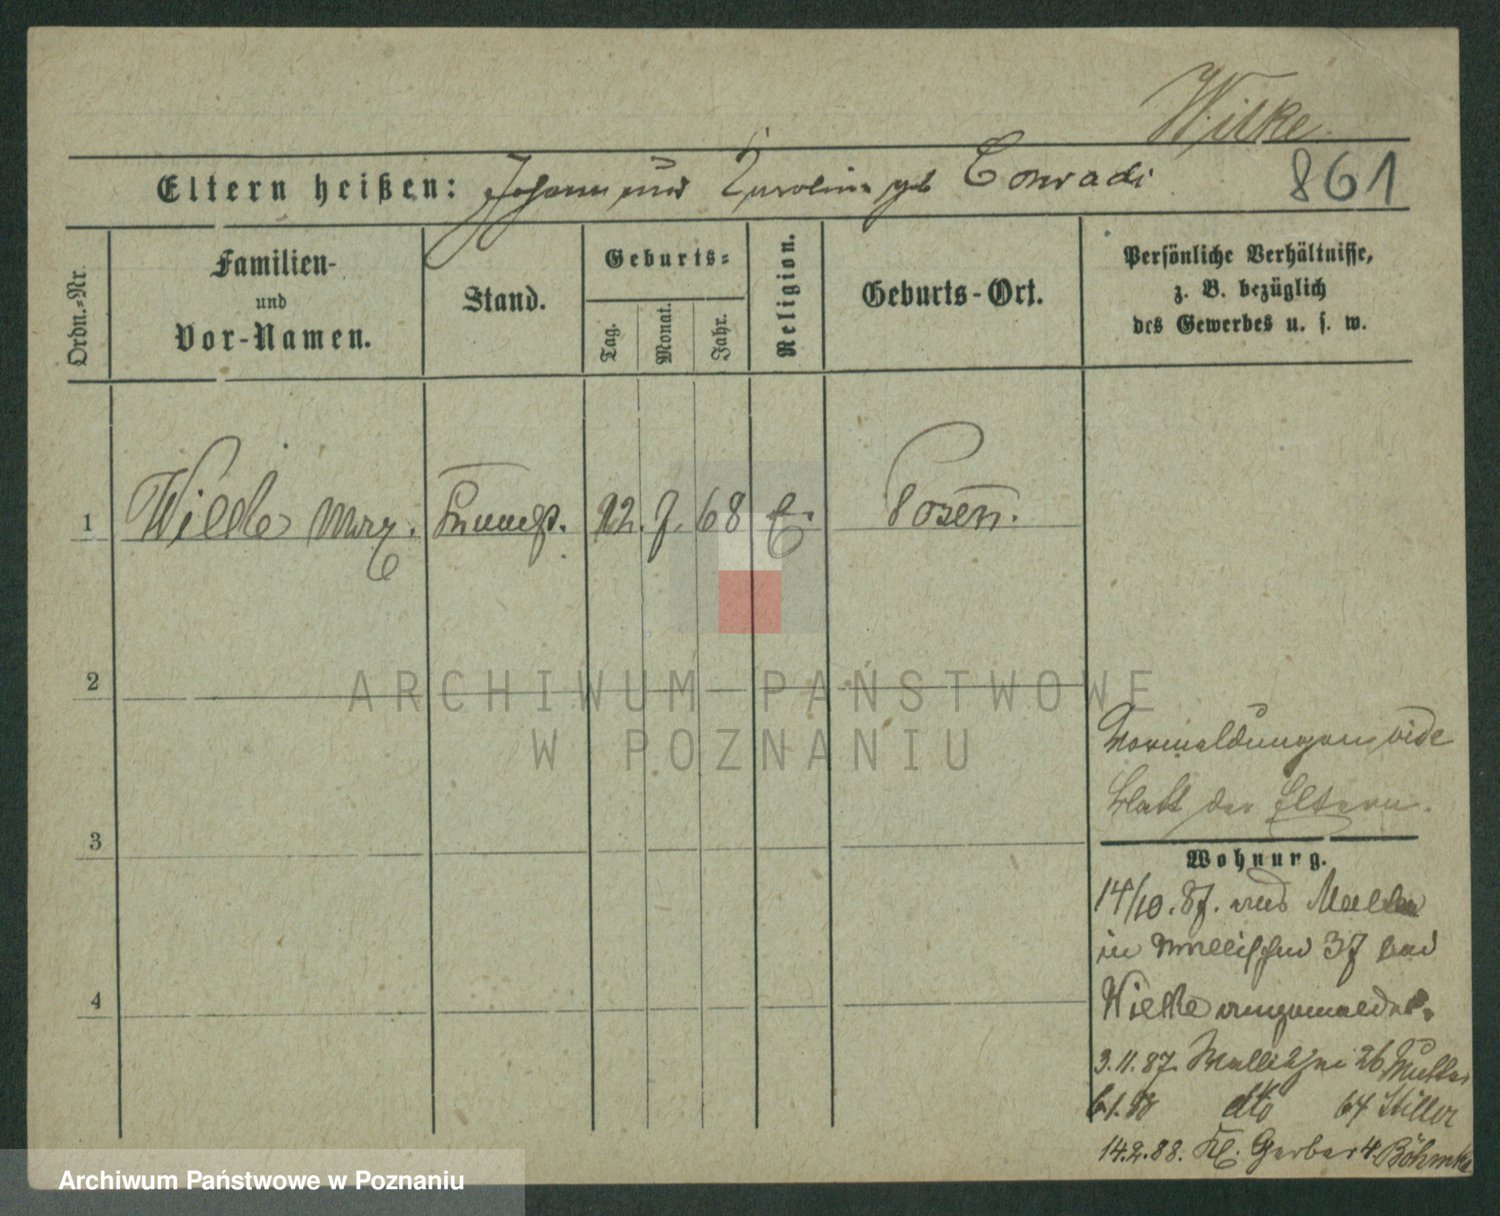 Wilke
Eltern heißen: Johann und Karoline geb Conradi
861
Ordn.-Nr.
Familien-
und
Vor-Namen.
Stand.
Geburts-
Tag.
Monat.
Jahr.
Religion.
Geburts-Ort.
Persönliche Verhältnisse,
z. B. bezüglich
des Gewerbes u. s. w.
1 Wilke Max. 12. 7. 68 E. Posen.
2
ARCHIWUM PAŃSTWOWE
W POZNANIU
Vormeldungen vide
Blatt der Eltern.
3
Wohnung.
14/10. 87. aus
in Wallischei 37 bei
Wilke angemeldet.
4
3.11.87. Wallischei 26 Mutter
6.1.88 dto 64 Stiller
14.2.88. Kl. Gerber 4. Böhmke
Archiwum Państwowe w Poznaniu